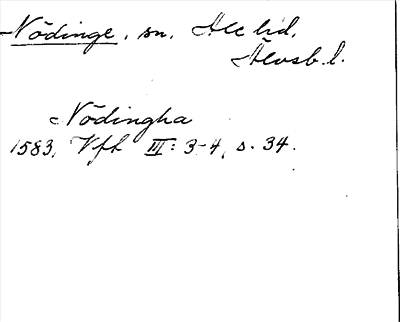 Nödinge, sn, Ale hd,
Älvsb. l.
Nödingha
1583, Vfh III: 3-4, s. 34.